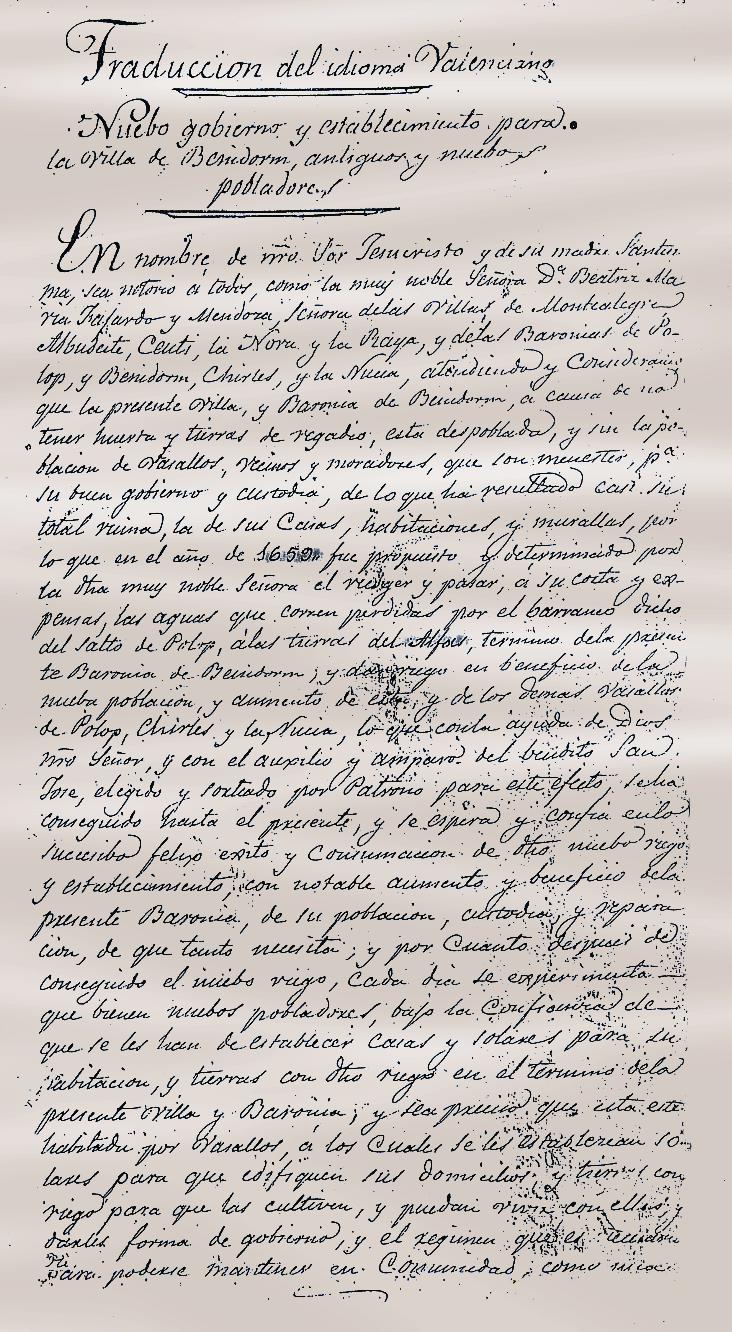 Traduccion del idioma Valenciano
Nuebo gobierno y establecimiento para
la Villa de Benidorm, antiguos y nuebos
pobladores
En nombre de nro. Sor Jesucristo y de su madre Santisi-
ma, sea notorio á todos, como la muy noble Señora Da. Beatriz Ma
ria Fajardo y Mendoza, Señora delas Villas de Montealegre
Albudeite, Ceuti, la Ñora y la Raya, y delas Baronias de Po-
lop, y Benidorm, Chirles, y la Nucia, atendiendo y Considerando
que la presente Villa, y Baronia de Benidorm, á causa de no
tener huerta y tierras de regadio, está despoblada, y sin la po-
blacion de Vasallos, vecinos y moradores, que son menester, pa.
su buen gobierno y custodia, de lo que ha resultado casi su
total ruina, la de sus Casas, habitaciones, y murallas, por
lo que en el año de 1659 fue propuesto y determinado por
la dha muy noble Señora el y pasar, a su costa y ex-
pensas, las aguas que corren perdidas por el barranco dicho
del Salto de Polop, álas tierras del Alfoes, termino dela presen
te Baronia de Benidorm; y dar riego en beneficio dela
nueba poblacion, y aumento de esta, y de los demas Vasallos
de Polop, Chirles y la Nucia, lo que conla ayuda de Dios
nro Señor, y con el auxilio y amparo del bendito San
Jose, elegido y sorteado por Patrono para este efeto, se ha
conseguido hasta el presente, y se espera y confia enlo
sucesibo felix exito y Consumacion de dho nuebo riego
y establecimiento, con notable aumento y beneficio dela
presente Baronia, de su poblacion, custodia, y repara
cion, de que tanto necesita; y por Cuanto despues de
conseguido el nuebo riego, cada dia se experimenta
que bienen nuebos pobladores, bajo la Confianza de
que se les han de establecer Casas y solares para su
habitacion, y tierras con dho riego en el termino dela
presente Villa y Baronia; y sea preciso que esta esté
habitada por Vasallos, á los Cuales se les establezcan so-
lares para que edifiquen sus domicilios, y tierras con
riego para que las cultiven, y puedan vivir con ellas; y
darles forma de gobierno, y el regimen que es
para poderse mantener en Comunidad, como